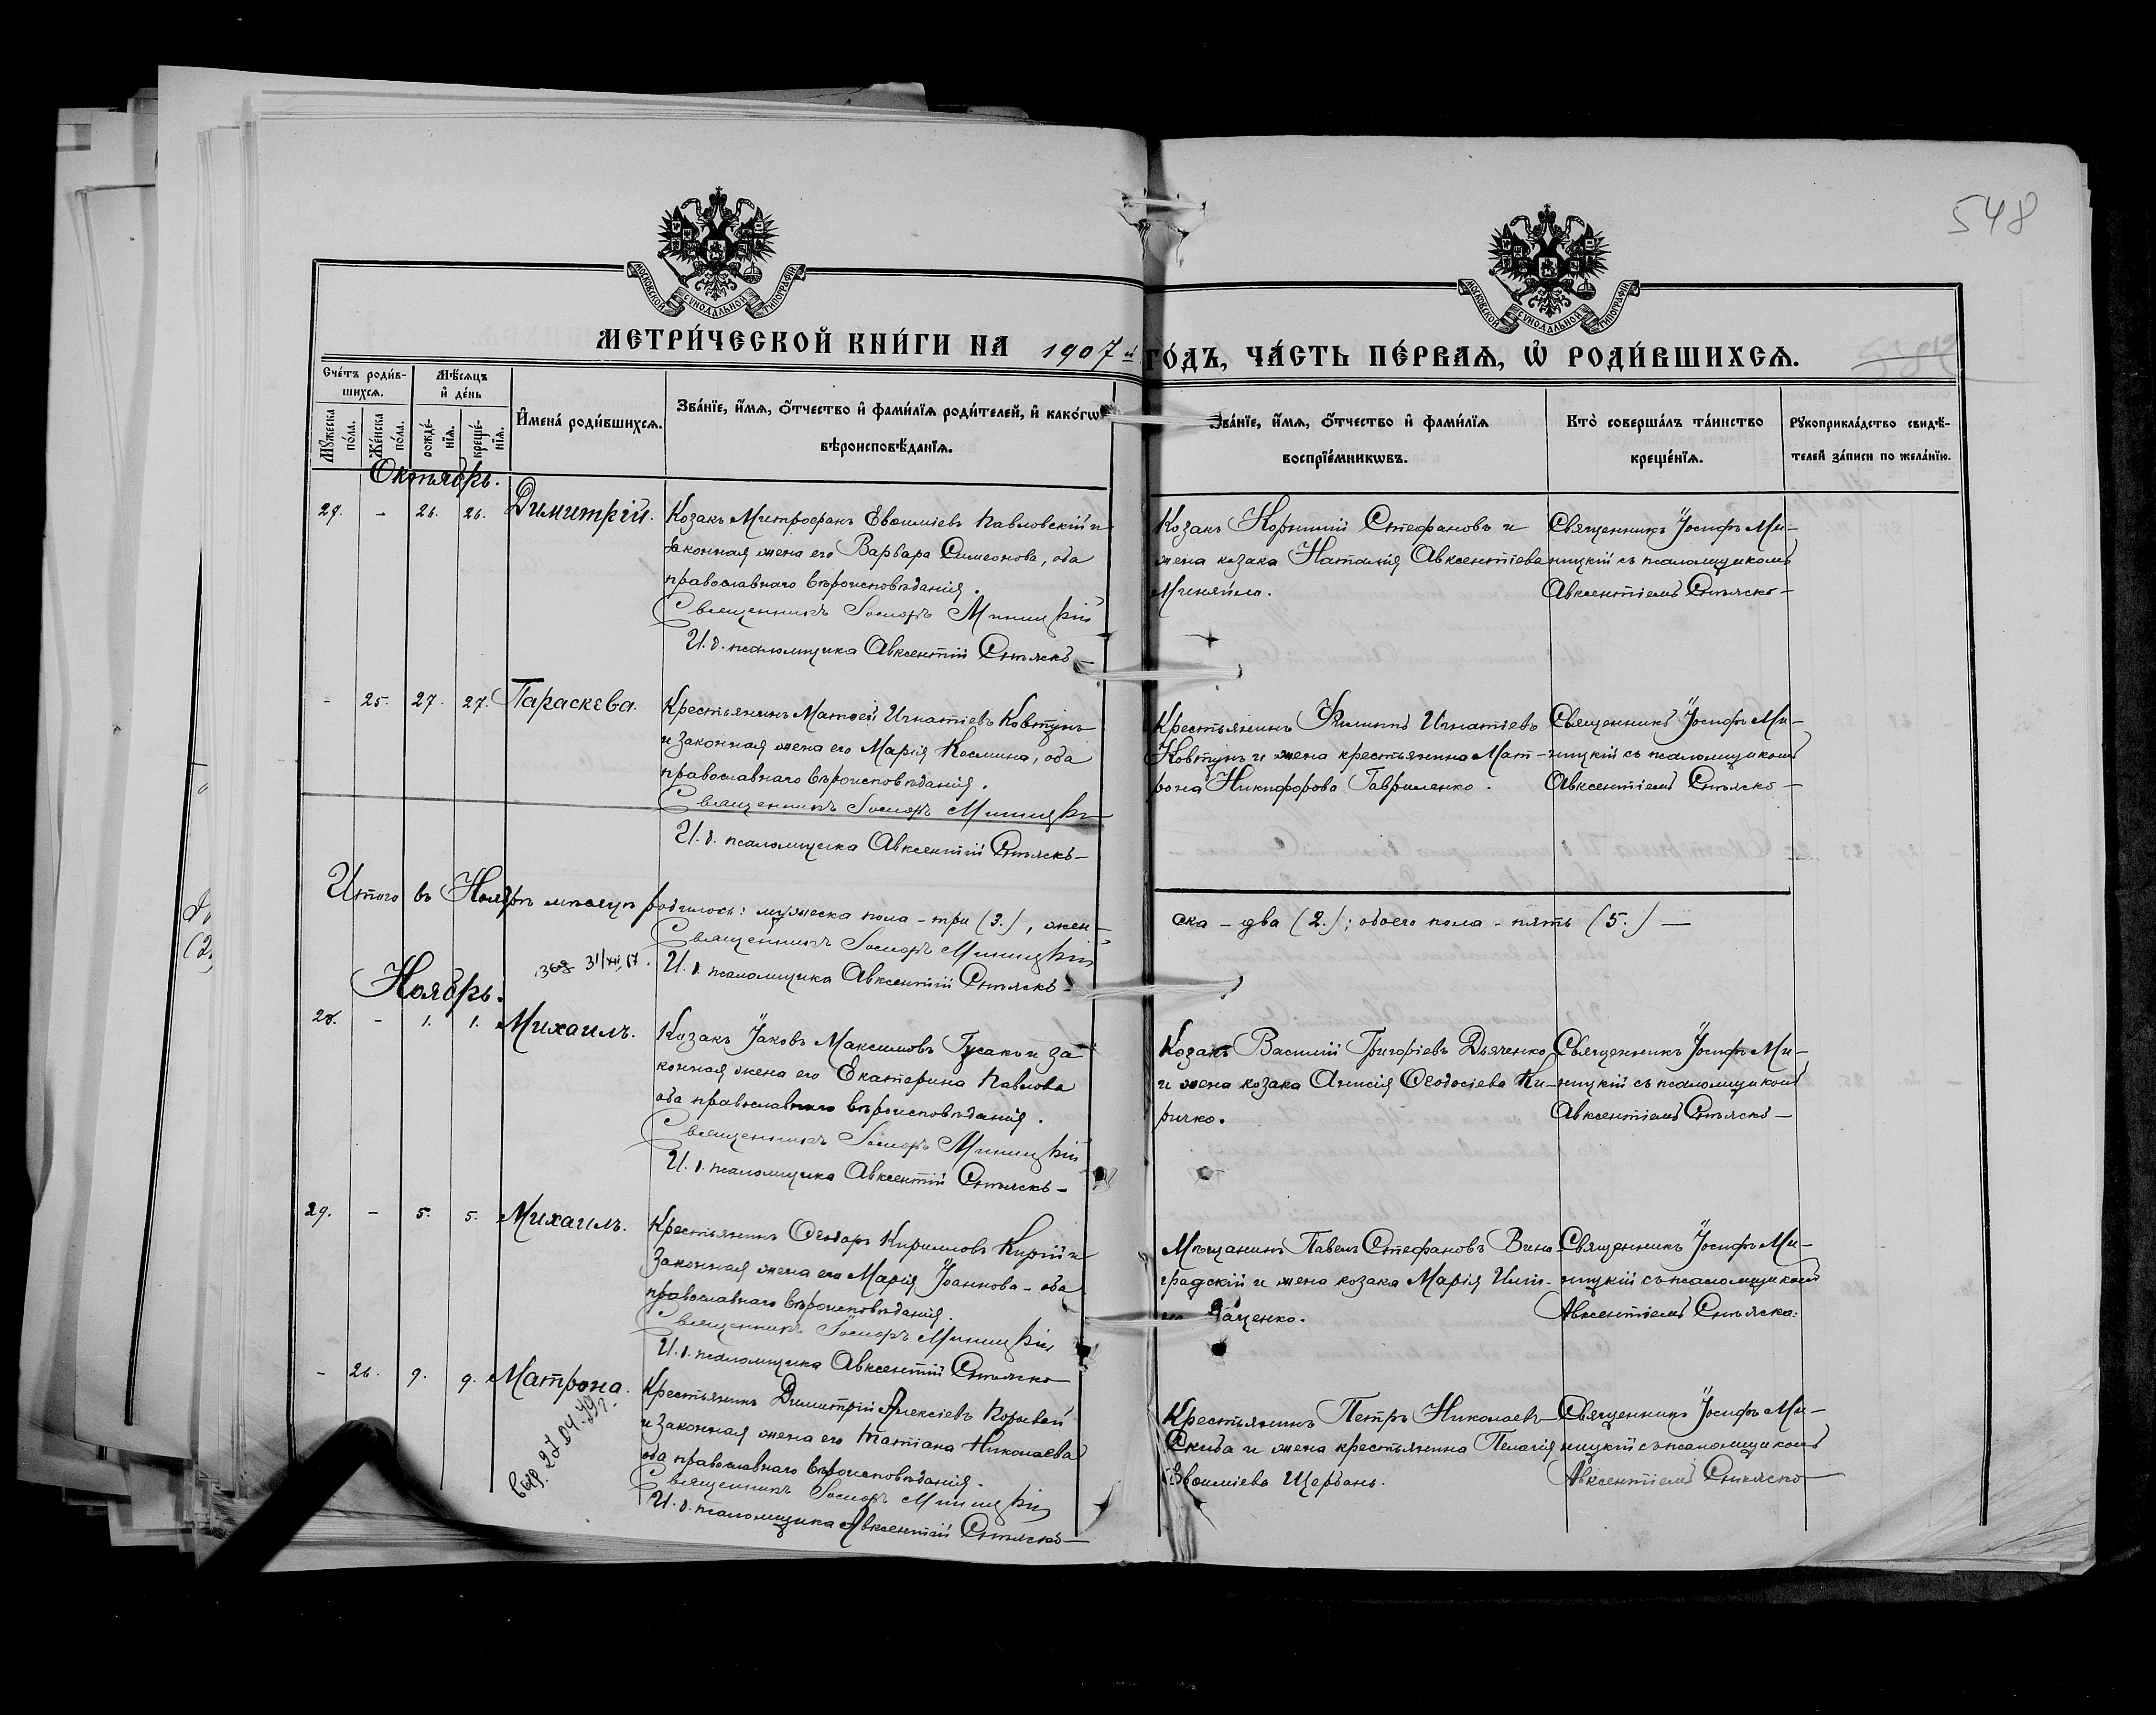 548
МОСКОВСКОЙ СУНОДАЛЬНОЙ ТИПОГРАФІИ
МОСКОВСКОЙ СУНОДАЛЬНОЙ ТИПОГРАФІИ
МЕТРИ́ЧЕСКОЙ КНИ́ГИ НА 1907 й
ГО́ДЪ, ЧА́СТЬ ПЕ́РВАѦ, Ѡ҆ РОДИ́ВШИХСѦ.
Сче́тъ роди́в-
шихсѧ.
Мѣ́сѧцъ
и҆ де́нь
Мꙋ́жеска
по́ла.
Же́нска
по́ла.
рожде́-
нїѧ.
креще́-
нїѧ.
И҆мена̀ роди́вшихсѧ.
Зва́нїе, и҆́мѧ, ѻ҆́тчество и҆ фами́лїѧ роди́телей, и҆ како́гѡ
вѣроисповѣ́данїѧ.
Зва́нїе, и҆́мѧ, ѻ҆́тчество и҆ фами́лїѧ
воспрїе́мникѡвъ.
Кто̀ соверша́лъ та́инство
креще́нїѧ.
Рꙋкоприкла́дство свидѣ́-
телей за́писи по жела́нїю.
Октябрь.
27. - 26. 26. Димитрій.
Козакъ Митрофанъ Евѳиміевъ Павловскій и
законная жена его Варвара Симеонова, оба
православнаго вѣроисповѣданія.
Священникъ Іосифъ Миницкій
И. д. псаломщика Авксентій
Козакъ Корнилій Стефановъ и
жена козака Наталія Авксентіева
Миняйло.
Священникъ Іосифъ Ми-
ницкій съ псаломщикомъ
Авксентіемъ
- 25. 27. 27. Параскева.
Крестьянинъ Матѳей Игнатіевъ Ковтунъ
и законная жена его Марія Космина, оба
православнаго вѣроисповѣданія.
Священникъ Іосифъ Миницкій
И. д. псаломщика Авксентій
Крестьянинъ Филиппъ Игнатіевъ
Ковтунъ и жена крестьянина Мат-
рона Никифорова Гавриленко.
Священникъ Іосифъ Ми-
ницкій съ псаломщикомъ
Авксентіемъ
Итого въ Ноябрѣ мѣсяцѣ родилось: мужеска пола - три (3.), жен-
ска - два (2.); обоего пола - пять (5.) —
Священникъ Іосифъ Миницкій
И. д. псаломщика Авксентій
Ноябрь.
28. - 1. 1. Михаилъ.
Козакъ Іаковъ Максимовъ Гусакъ и за-
конная жена его Екатерина Павлова
оба православнаго вѣроисповѣданія.
Священникъ Іосифъ Миницкій
И. д. псаломщика Авксентій
Козакъ Василій Григоріевъ Дьяченко
и жена козака Анисія Ѳеодосіева Ки-
ричко.
Священникъ Іосифъ Ми-
ницкій съ псаломщикомъ
Авксентіемъ
29. - 5. 5. Михаилъ.
Крестьянинъ Ѳеодоръ Кирилловъ Кирій и
законная жена его Марія Іоаннова - оба
православнаго вѣроисповѣданія.
Священникъ Іосифъ Миницкій
И. д. псаломщика Авксентій
Мѣщанинъ Павелъ Стефановъ Вино-
градскій и жена козака Марія Иліи-
Священникъ Іосифъ Ми-
ницкій съ псаломщикомъ
Авксентіемъ
- 26. 9. 9. Матрона.
Крестьянинъ Димитрій Алексіевъ
и законная жена его Татіана Николаева
оба православнаго вѣроисповѣданія.
Священникъ Іосифъ Миницкій
И. д. псаломщика Авксентій
Крестьянинъ Петръ Николаевъ
Скиба и жена крестьянина Пелагія
Евѳиміева Щербань.
Священникъ Іосифъ Ми-
ницкій съ псаломщикомъ
Авксентіемъ